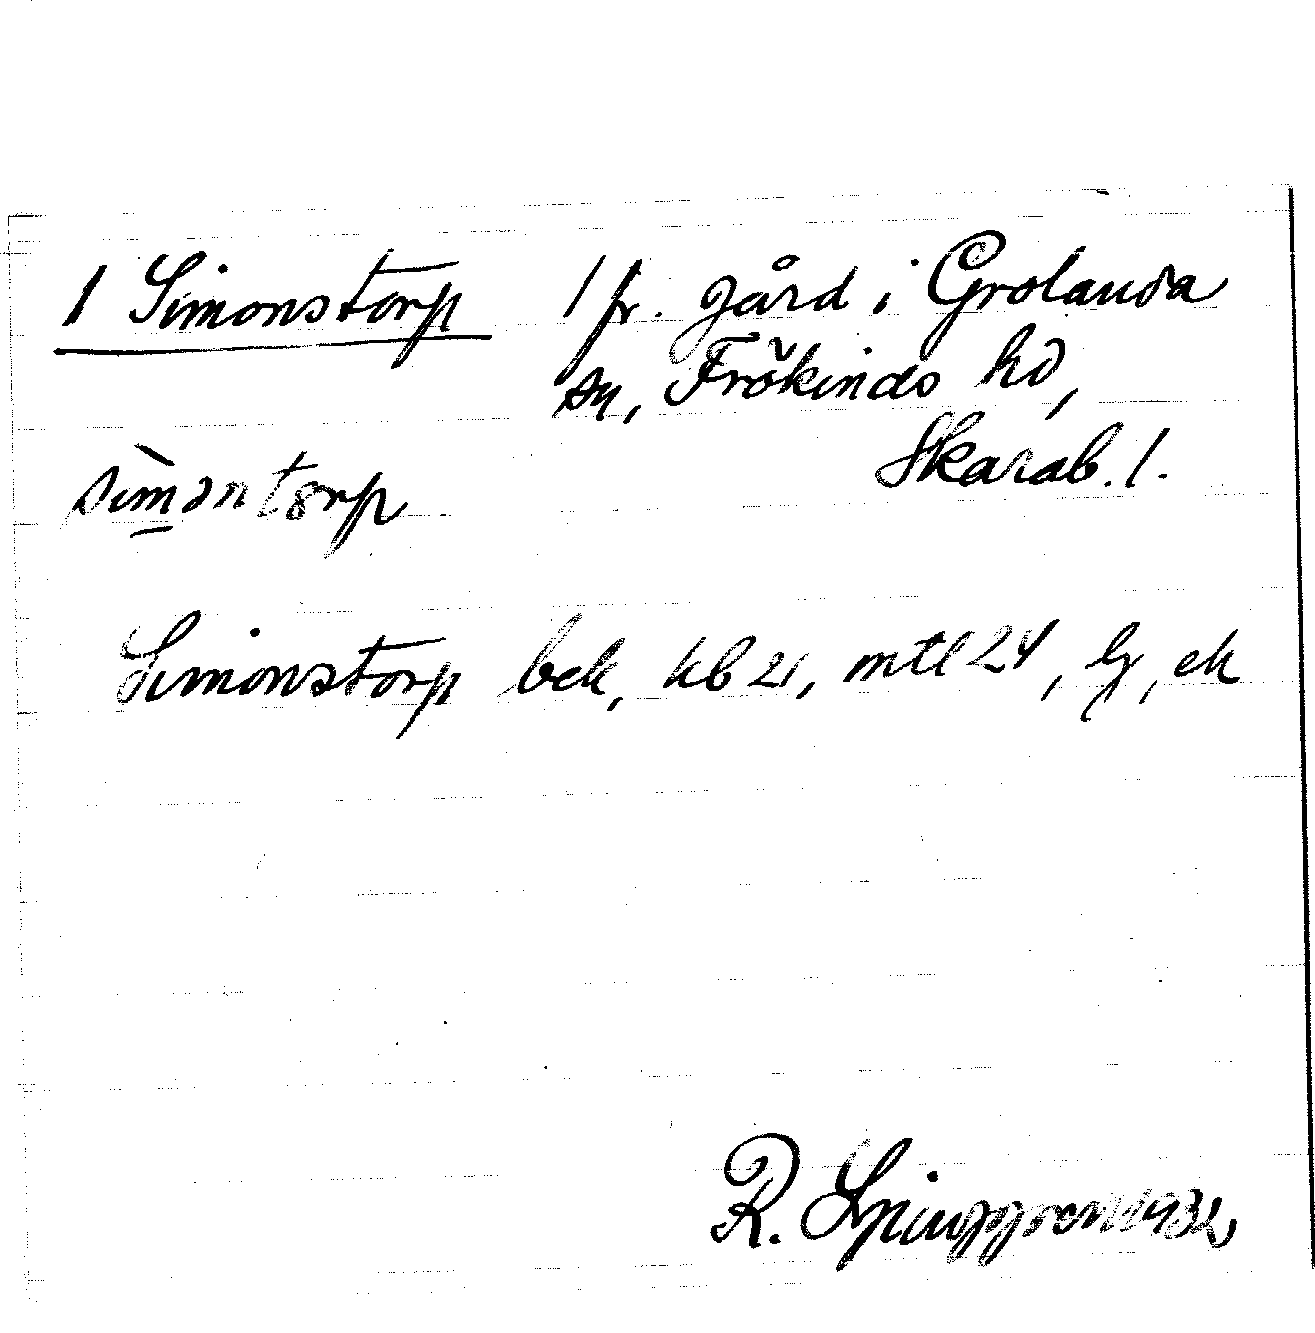 1 Simonstorp 1 fr. gård i Grolanda
sn, Frökinds hd,
Skarab. l.
sìmantorp
Simonstorp bek, kb 21, mtl 24, lg, ek
R. Ljunggren 1932